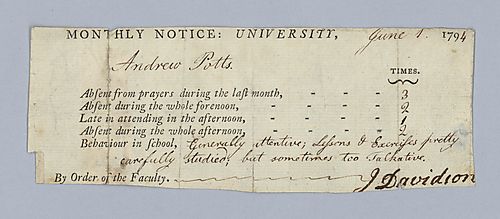 MONTHLY NOTICE: UNIVERSITY, June 1. 1794
Andrew Potts.
TIMES.
Absent from prayers during the last month, - - - - 3
Absent during the whole forenoon, - - - - 2
Late in attending in the afternoon, - - - - 1
Absent during the whole afternoon, - - - - 2
Behaviour in school, Generally attentive; Lessons & Exercises pretty
carefully studied; but sometimes too Talkative.
By Order of the Faculty. J Davidson